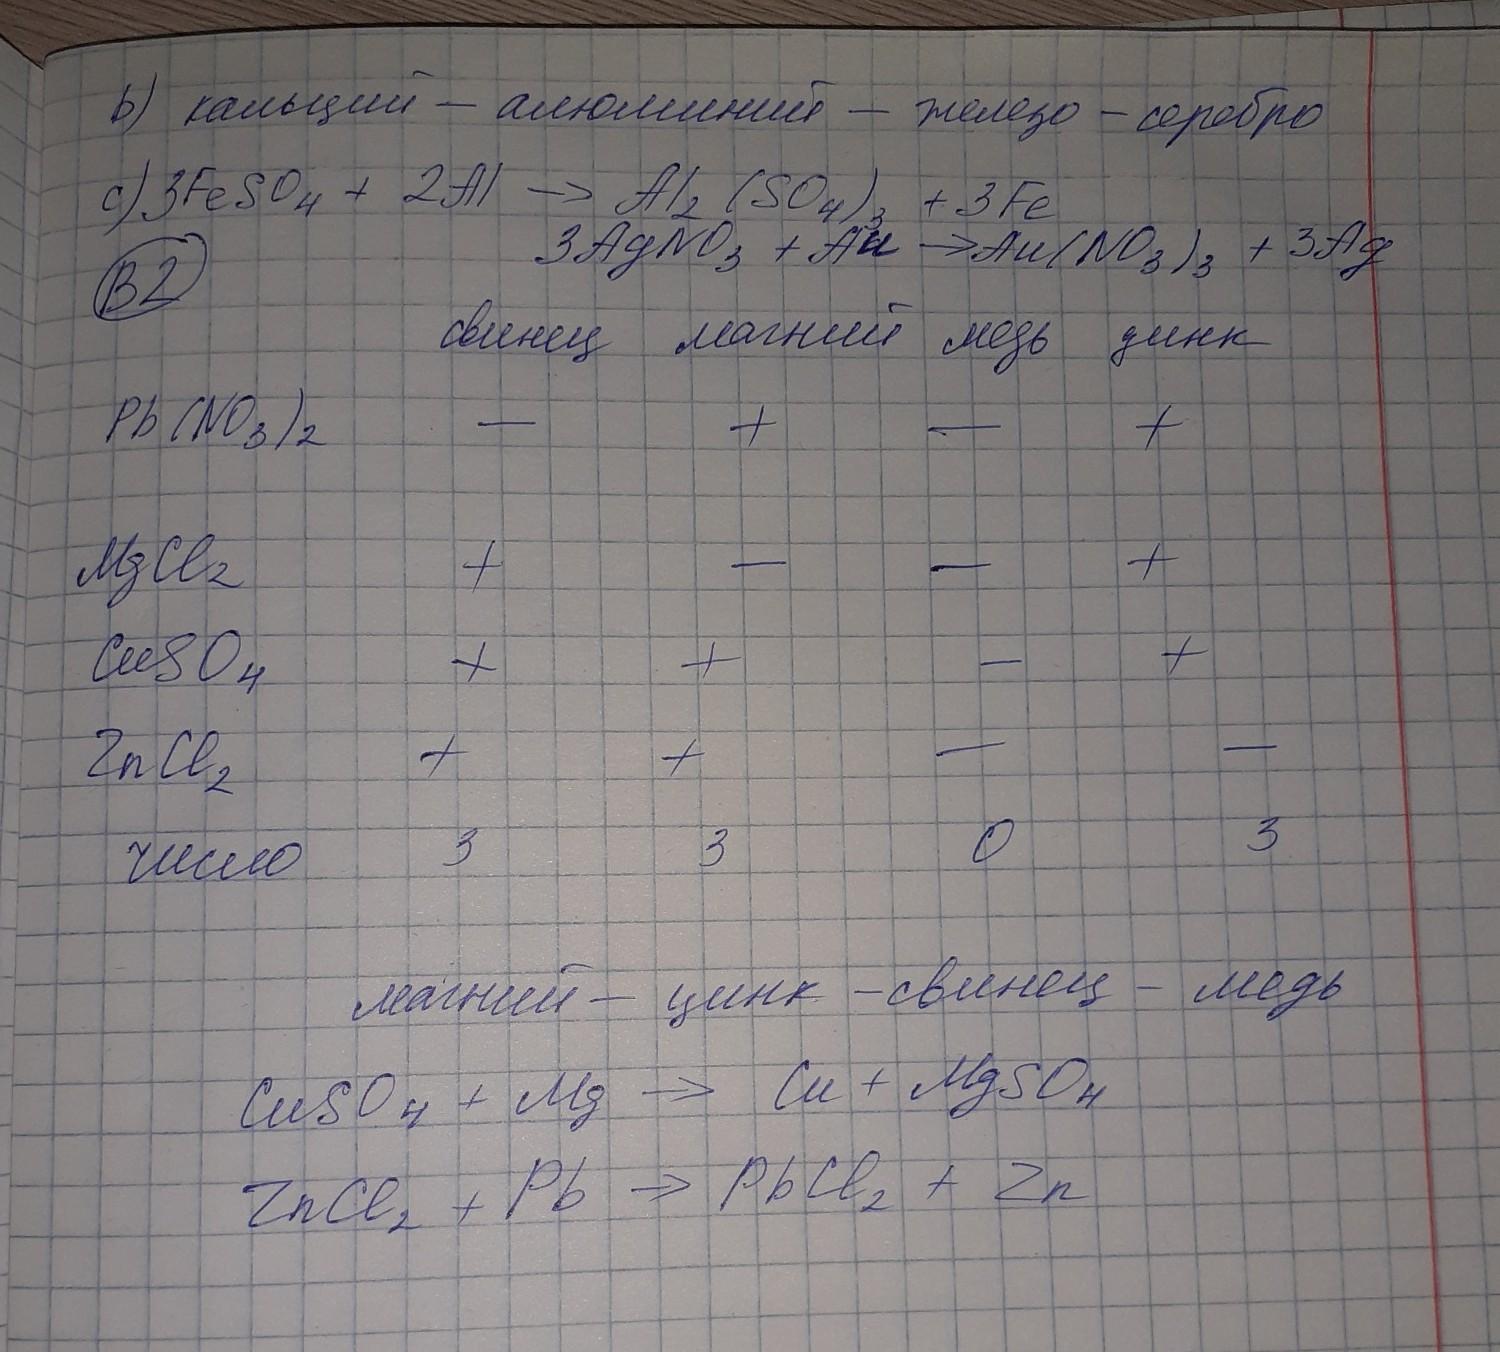 b) кальций – алюминий – железо – серебро
c) 3FeSO4 + 2Al → Al2(SO4)3 + 3Fe
3AgNO3 + Au → Au(NO3)3 + 3Ag
B2
свинец магний медь цинк
Pb(NO3)2 – + – +
MgCl2 + – – +
CuSO4 + + – +
ZnCl2 + + – –
число 3 3 0 3
магний – цинк – свинец – медь
CuSO4 + Mg → Cu + MgSO4
ZnCl2 + Pb → PbCl2 + Zn